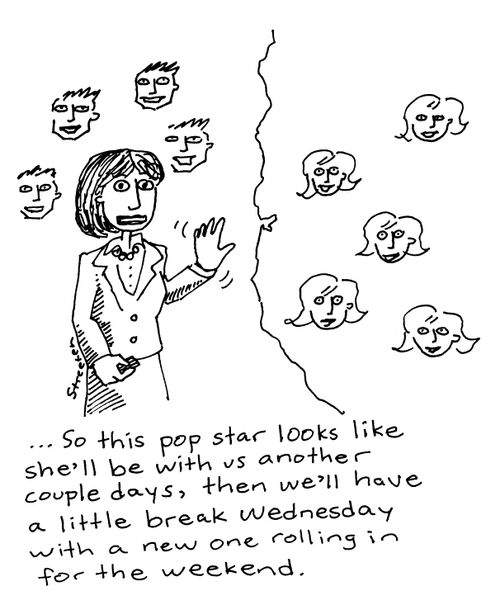 Streeter
... So this pop star looks like
she'll be with us another
couple days, then we'll have
a little break Wednesday
with a new one rolling in
for the weekend.